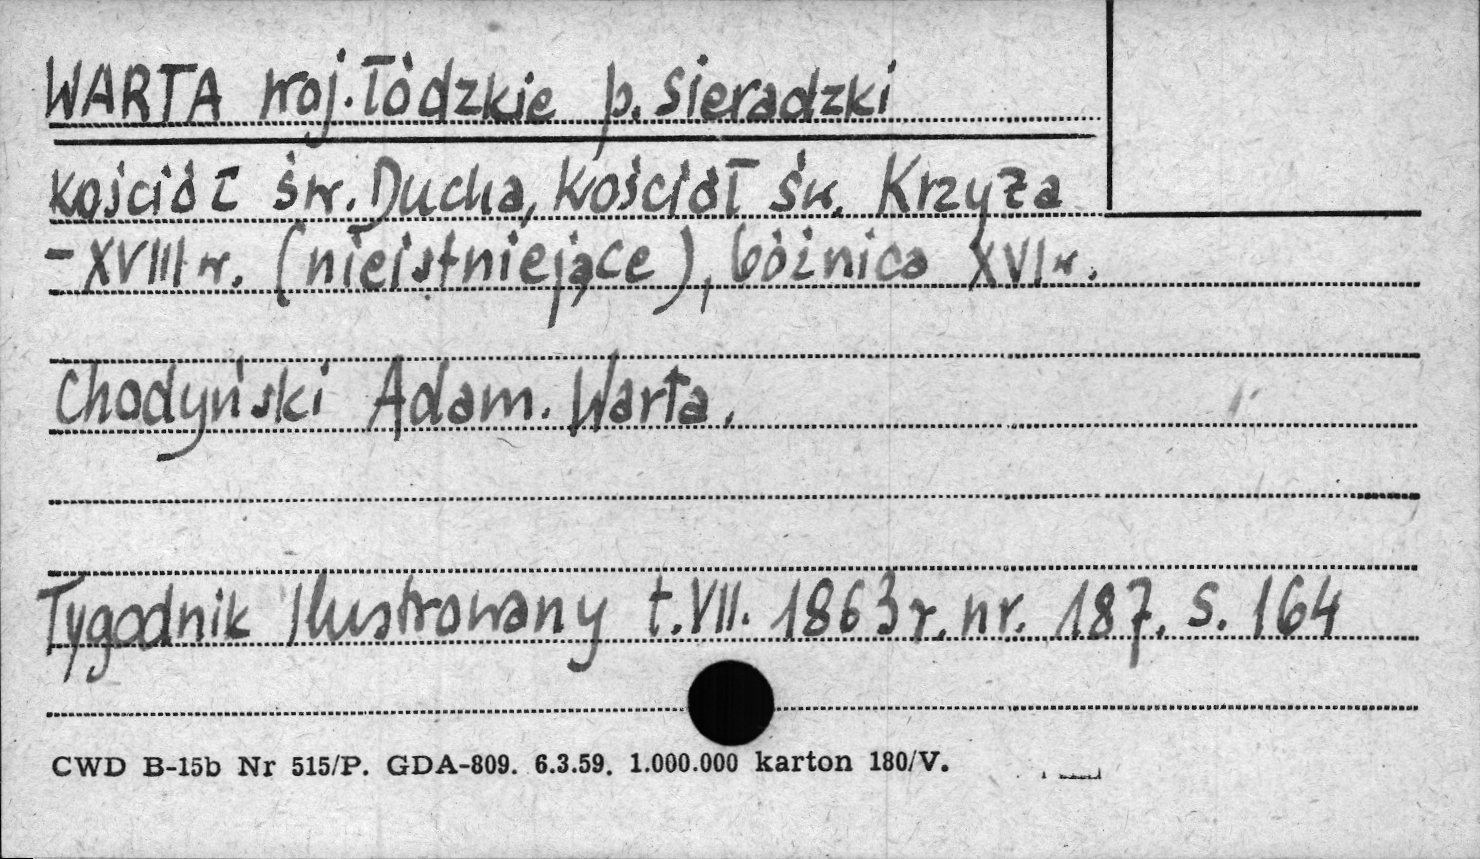 WARTA woj. łódzkie p. sieradzki
kościół św. Ducha, kościół św. Krzyża
- XVIII w. (nieistniejące), bóżnica XVI w.
Chodyński Adam. Warta.
Tygodnik Ilustrowany t. VII. 1863 r. nr. 187. s. 164
CWD B-15b Nr 515/P. GDA-809. 6.3.59. 1.000.000 karton 180/V.